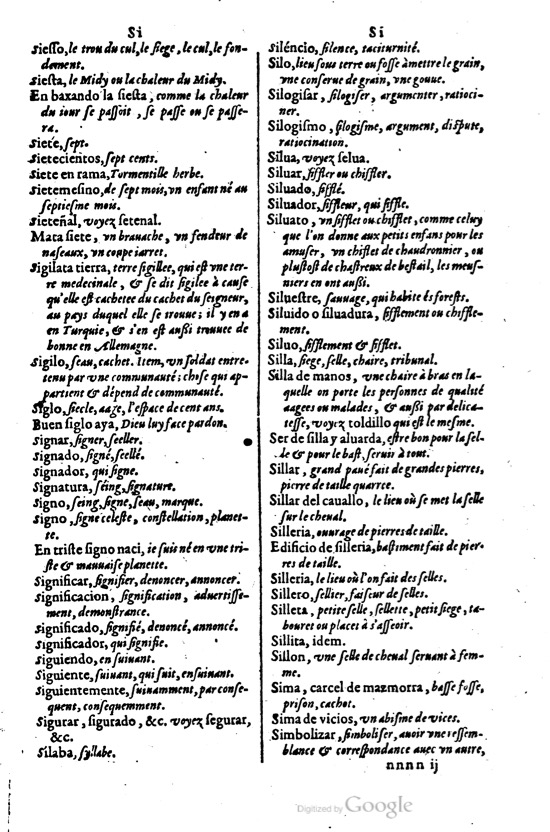 Si
Siesso, le trou du cul, le siege, le cul, le fon-
dement.
Siesta, le Midy ou la chaleur du Midy.
En baxando la siesta, comme la chaleur
du iour se passoit, se passe ou se passe-
ra.
Siete, sept.
Sietecientos, sept cents.
Siete en rama, Tormentille herbe.
Sietemesino, de sept mois, vn enfant né au
septiesme mois.
Sieteñal, voyez setenal.
Mata siete, vn brauache, vn fendeur de
naseaux, vn coupe iarret.
Sigilata tierra, terre sigillee, qui est vne ter-
re medecinale, & se dit sigilee à cause
qu'elle est cachetee du cachet du seigneur,
au pays duquel elle se trouue; il y en a
en Turquie, & s'en est aussi trouuee de
bonne en Allemagne.
Sigilo, seau, cachet. Item, vn soldat entre-
tenu par vne communauté; chose qui ap-
partient & dépend de communauté.
Siglo, siecle, aage, l'espace de cent ans.
Buen siglo aya, Dieu luy face pardon.
Signar, signer, seeller.
Signado, signé, seellé.
Signador, qui signe.
Signatura, seing, signature.
Signo, seing, signe, seau, marque.
Signo, signe celeste, constellation, planet-
te.
En triste signo naci, ie suis né en vne tri-
ste & mauuaise planette.
Significar, signifier, denoncer, annoncer.
Significacion, signification, aduertisse-
ment, demonstrance.
Significado, signifié, denoncé, annoncé.
Significador, qui signifie.
Siguiendo, en suiuant.
Siguiente, suiuant, qui suit, ensuiuant.
Siguientemente, suiuamment, par conse-
quent, consequemment.
Sigurar, sigurado, &c. voyez segurar,
&c.
Silaba, syllabe.
Si
Siléncio, silence, taciturnité.
Silo, lieu sous terre ou fosse à mettre le grain,
vne conserue de grain, vne gouue.
Silogisar, silogiser, argumenter, ratioci-
ner.
Silogismo, silogisme, argument, dispute,
ratiocination.
Silua, voyez selua.
Siluar, siffler ou chiffler.
Siluado, sifflé.
Siluador, siffleur, qui siffle.
Siluato, vn sifflet ou chifflet, comme celuy
que l'on donne aux petits enfans pour les
amuser, vn chiflet de chaudronnier, ou
plustost de chastreux de bestail, les meus-
niers en ont aussi.
Siluestre, sauuage, qui habite és forests.
Siluido o siluadura, sifflement ou chiffle-
ment.
Siluo, sifflement & sifflet.
Silla, siege, selle, chaire, tribunal.
Silla de manos, vne chaire à bras en la-
quelle on porte les personnes de qualité
aagees ou malades, & aussi par delica-
tesse, voyez toldillo qui est le mesme.
Ser de silla y aluarda, estre bon pour la sel-
le & pour le bast, seruir à tout.
Sillar, grand paué fait de grandes pierres,
pierre de taille quarree.
Sillar del cauallo, le lieu où se met la selle
sur le cheual.
Silleria, ouurage de pierres de taille.
Edificio de silleria, bastiment fait de pier-
res de taille.
Silleria, le lieu où l'on fait des selles.
Sillero, sellier, faiseur de selles.
Silleta, petite selle, sellette, petit siege, ta-
bouret ou placet à s'asseoir.
Sillita, idem.
Sillon, vne selle de cheual seruant à fem-
me.
Sima, carcel de mazmorra, basse fosse,
prison, cachot.
Sima de vicios, vn abisme de vices.
Simbolizar, simboliser, auoir vne ressem-
blance & correspondance auec vn autre,
nnnn ij
Digitized by Google